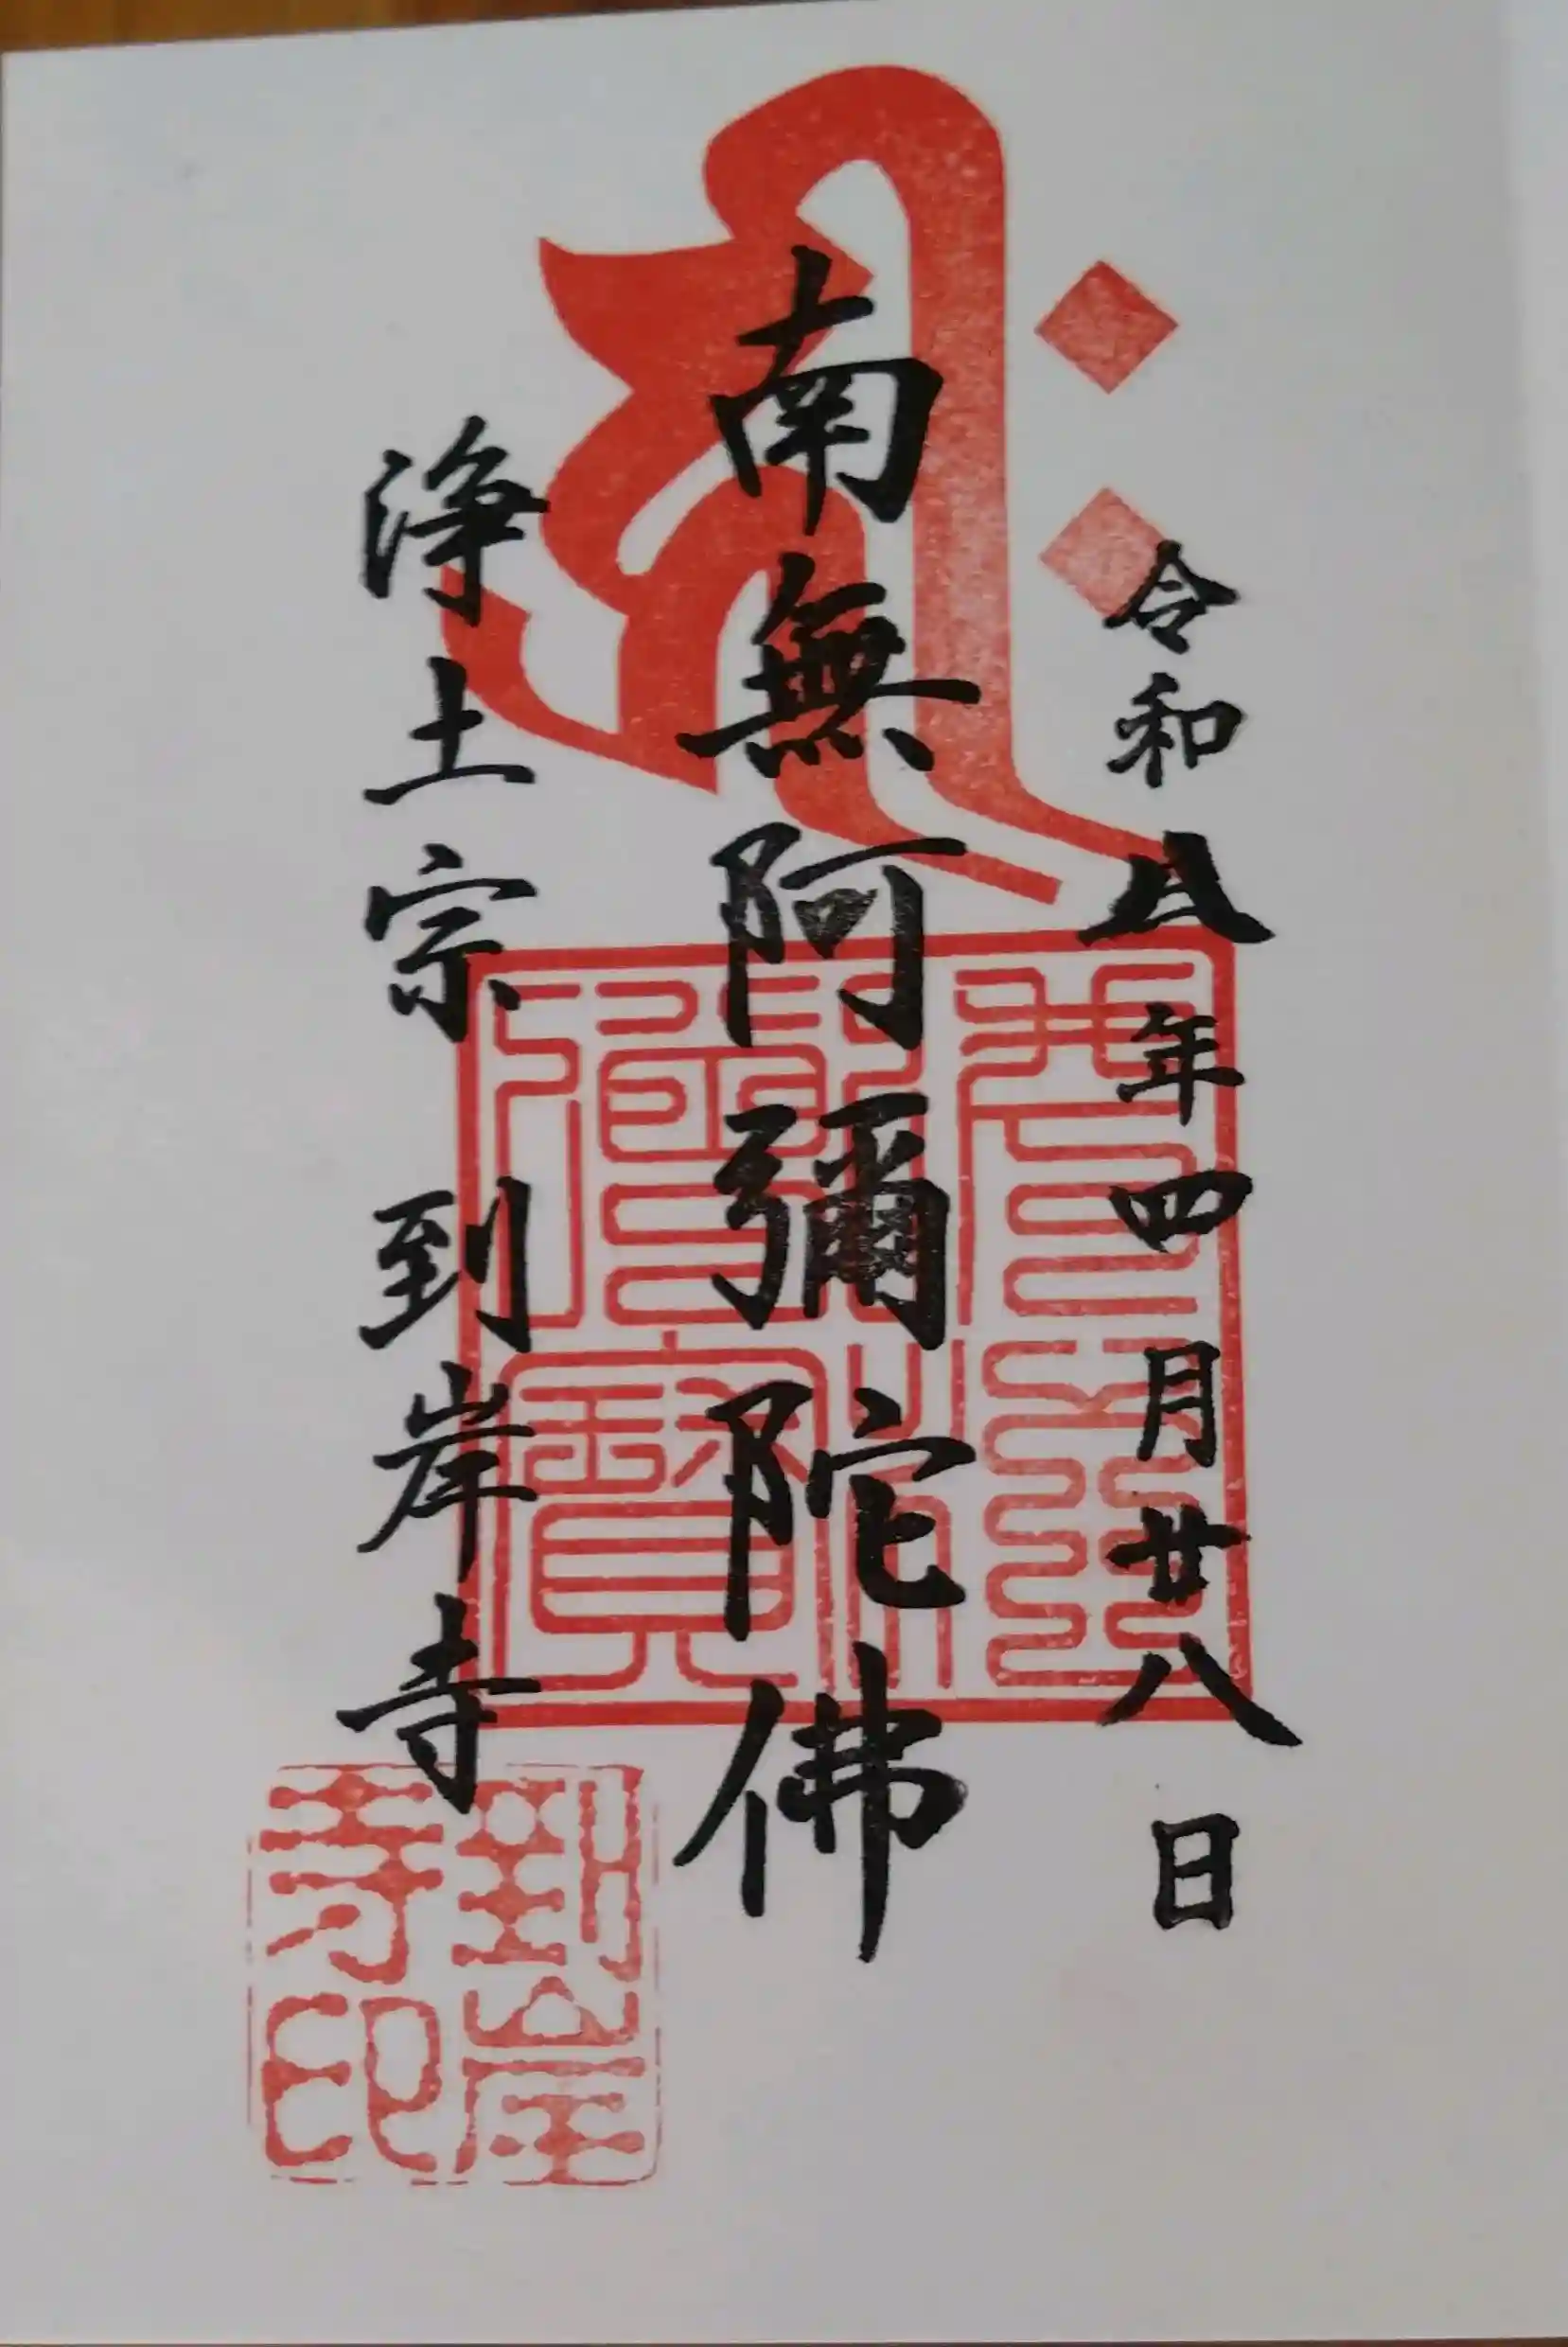 令和八年四月廿八日
南無阿彌陀佛
浄土宗 到岸寺
到岸寺印